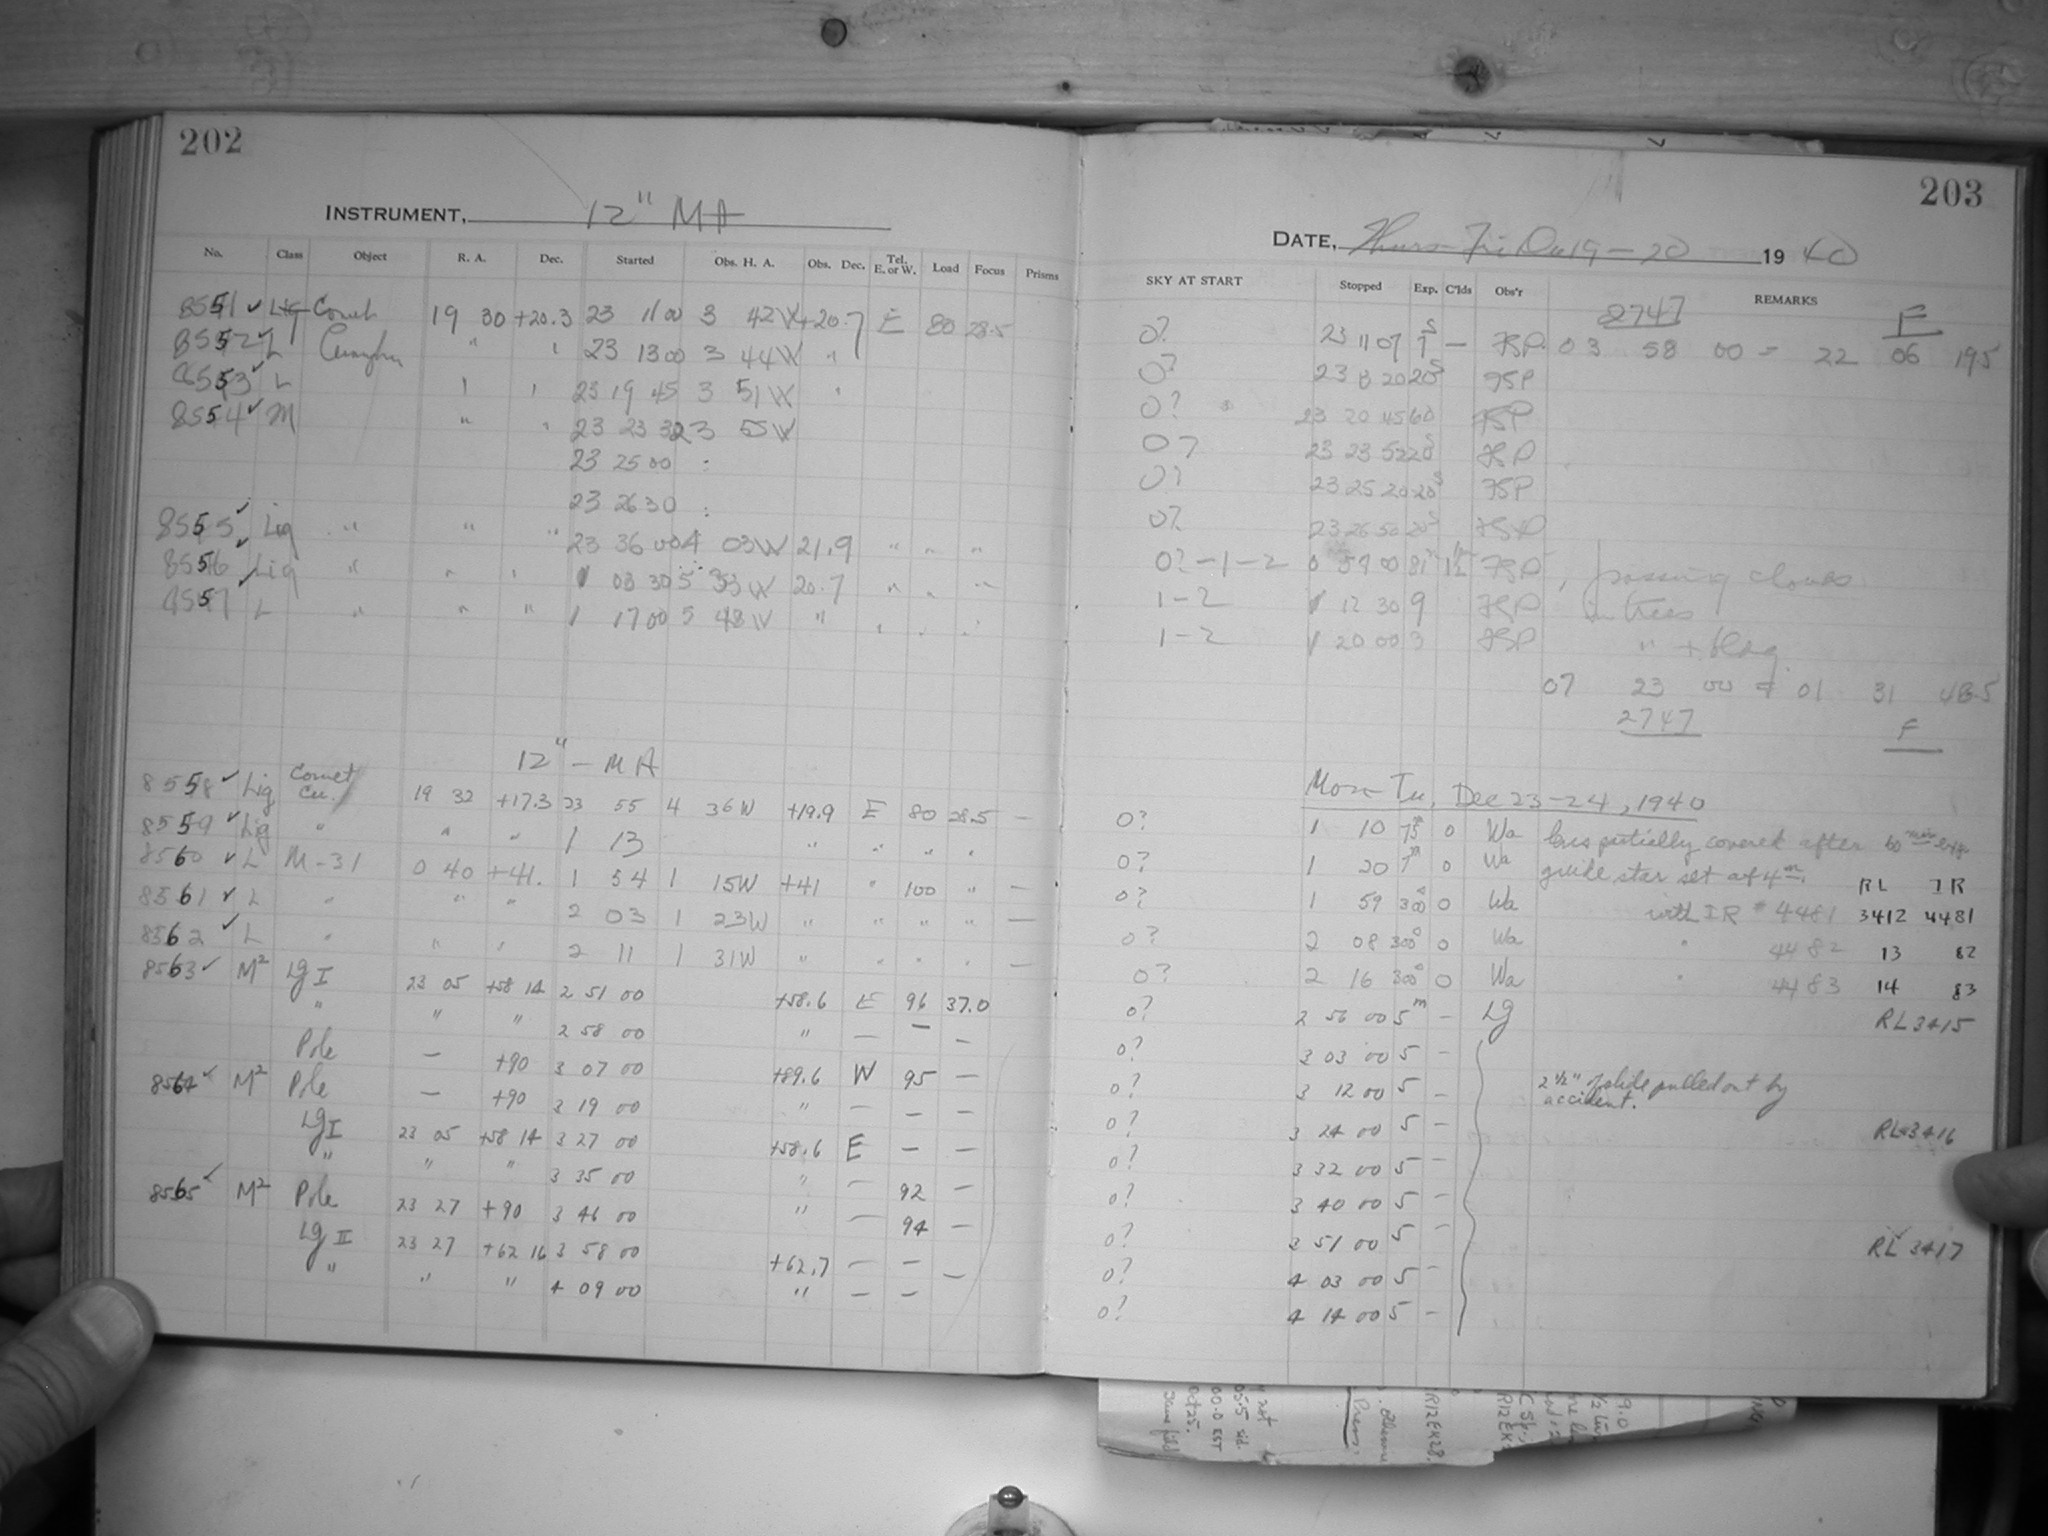 202
INSTRUMENT, 12" MA
No. Class Object R. A. Dec. Started Obs. H. A. Obs. Dec. Tel. E. or W. Load Focus Prisms
8551 ✓ Lig Comet 19 30 +20.3 23 11 00 3 42W +20.7 E 80 28.5
8552 ✓ L " " 23 13 00 3 44W "
8553 ✓ L " " 23 19 45 3 51W "
8554 ✓ M " " 23 23 32 3 55W
23 25 00 :
23 26 30 :
8555 ✓ Lig " " " 23 36 00 4 03W 21.9 " " "
8556 ✓ Lig " " " 1 03 30 5 33W 20.7 " " "
8557 ✓ L " " " 1 17 00 5 48W " " " "
12" - MA
8558 ✓ Lig Comet Cu. 19 32 +17.3 23 55 4 36W +19.9 E 80 28.5 —
8559 ✓ Lig " " " 1 13 " " " "
8560 ✓ L M-31 0 40 +41. 1 54 1 15W +41 " 100 " —
8561 ✓ L " " " 2 03 1 23W " " " " —
8562 ✓ L " " " 2 11 1 31W " " " " —
8563 ✓ M² Lg I 23 05 +58 14 2 51 00 +58.6 E 96 37.0
" " " 2 58 00 " — — —
Pole — +90 3 07 00 +89.6 W 95 —
8564 ✓ M² Pole — +90 3 19 00 " — — —
Lg I 23 05 +58 14 3 27 00 +58.6 E — —
" " " 3 35 00 " — 92 —
8565 ✓ M² Pole 23 27 +90 3 46 00 " — 94 —
Lg II 23 27 +62 16 3 58 00 +62.7 — — —
" " " 4 09 00 " — —
203
DATE, Thurs-Fri Dec 19-20 1940
SKY AT START Stopped Exp. C'lds Obs'r REMARKS
2747 F
0? 23 11 07 7s — FSP 03 58 00 = 22 06 19.5
0? 23 13 20 20s FSP
0? 23 20 45 60 FSP
0? 23 23 52 20s FSP
0? 23 25 20 20s FSP
0? 23 26 50 20s FSP
0?-1-2 0 59 00 81m FSP, passing clouds
1-2 1 12 30 9 FSP in trees
1-2 1 20 00 3 FSP " + bldg.
07 23 00 = 01 31 48.5
2747 F
Mon-Tu, Dec 23-24, 1940
0? 1 10 75m 0 Wa lens partially covered after 60 min exp.
0? 1 20 7m 0 Wa guide star set at 4m. RL IR
0? 1 59 300s 0 Wa with IR # 4481 3412 4481
0? 2 08 300s 0 Wa " 4482 13 82
0? 2 16 300s 0 Wa " 4483 14 83
0? 2 56 00 5m — Lg RL 3415
0? 3 03 00 5 —
0? 3 12 00 5 — 2½" of slide pulled out by accident.
0? 3 24 00 5 — RL 3416
0? 3 32 00 5 —
0? 3 40 00 5 —
0? 3 51 00 5 — RL 3417
0? 4 03 00 5 —
0? 4 14 00 5 —